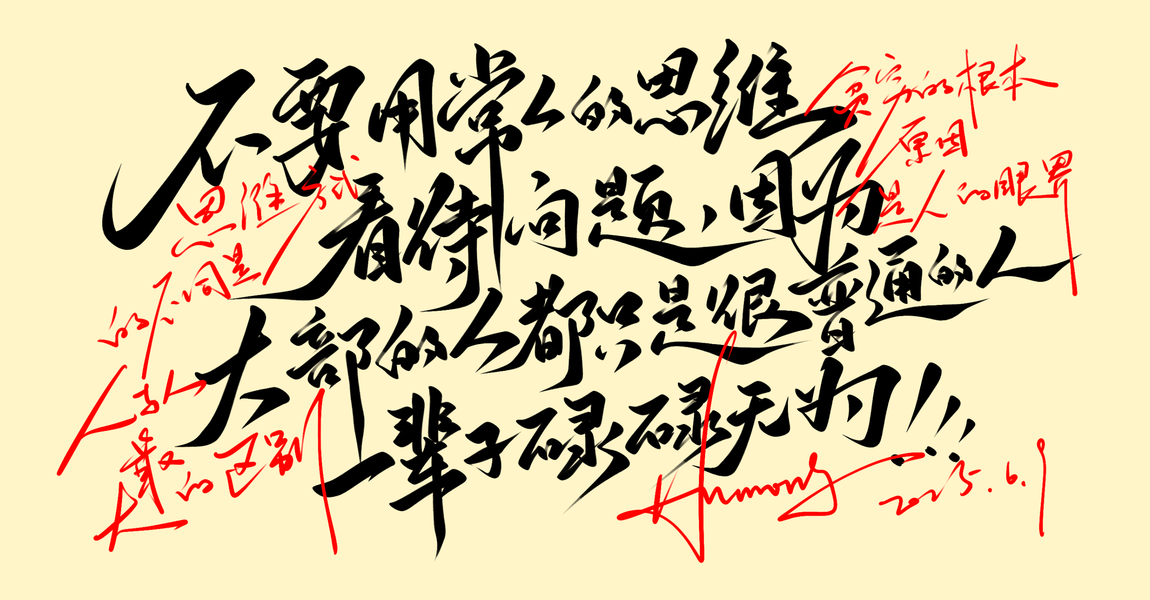 不要用常人的思维
看待问题，因为
大部的人都只是很普通的人
一辈子碌碌无为!!!
贫穷的根本
原因
是人的眼界
思维方式
的不同是
人与人
最大的区别
2025.6.9